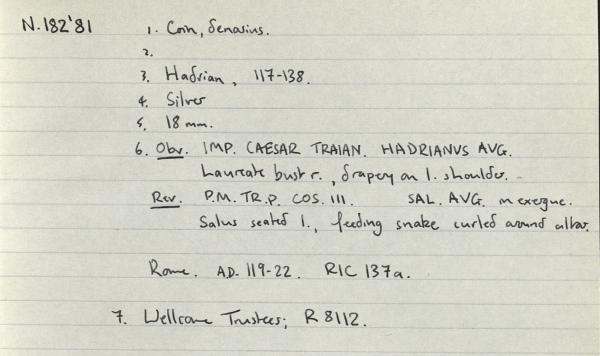 N.182'81
1. Coin, denarius.
2.
3. Hadrian, 117-138.
4. Silver
5. 18 mm.
6. Obv. IMP. CAESAR TRAIAN. HADRIANVS AVG.
Laureate bust r., drapery on l. shoulder.
Rev. P.M. TR.P. COS. III. SAL. AVG. in exergue.
Salus seated l., feeding snake curled around altar.
Rome. A.D. 119-22. RIC 137a.
7. Wellcome Trustees; R 8112.